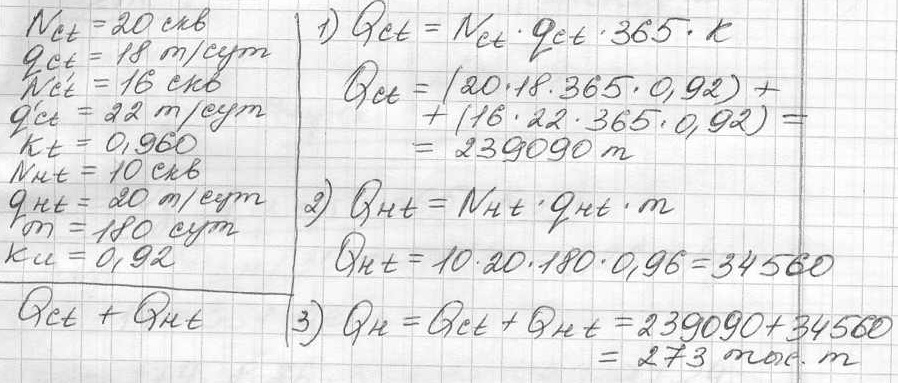 Nct = 20 скв
qct = 18 т/сут
N'ct = 16 скв
q'ct = 22 т/сут
Kt = 0,960
Nнt = 10 скв
qнt = 20 т/сут
m = 180 сут
Kи = 0,92
Qct + Qнt
1) Qct = Nct · qct · 365 · K
Qct = (20·18·365·0,92) +
+ (16·22·365·0,92) =
= 239090 т
2) Qнt = Nнt · qнt · m
Qнt = 10·20·180·0,96 = 34560
3) Qн = Qct + Qнt = 239090 + 34560
= 273 тыс. т